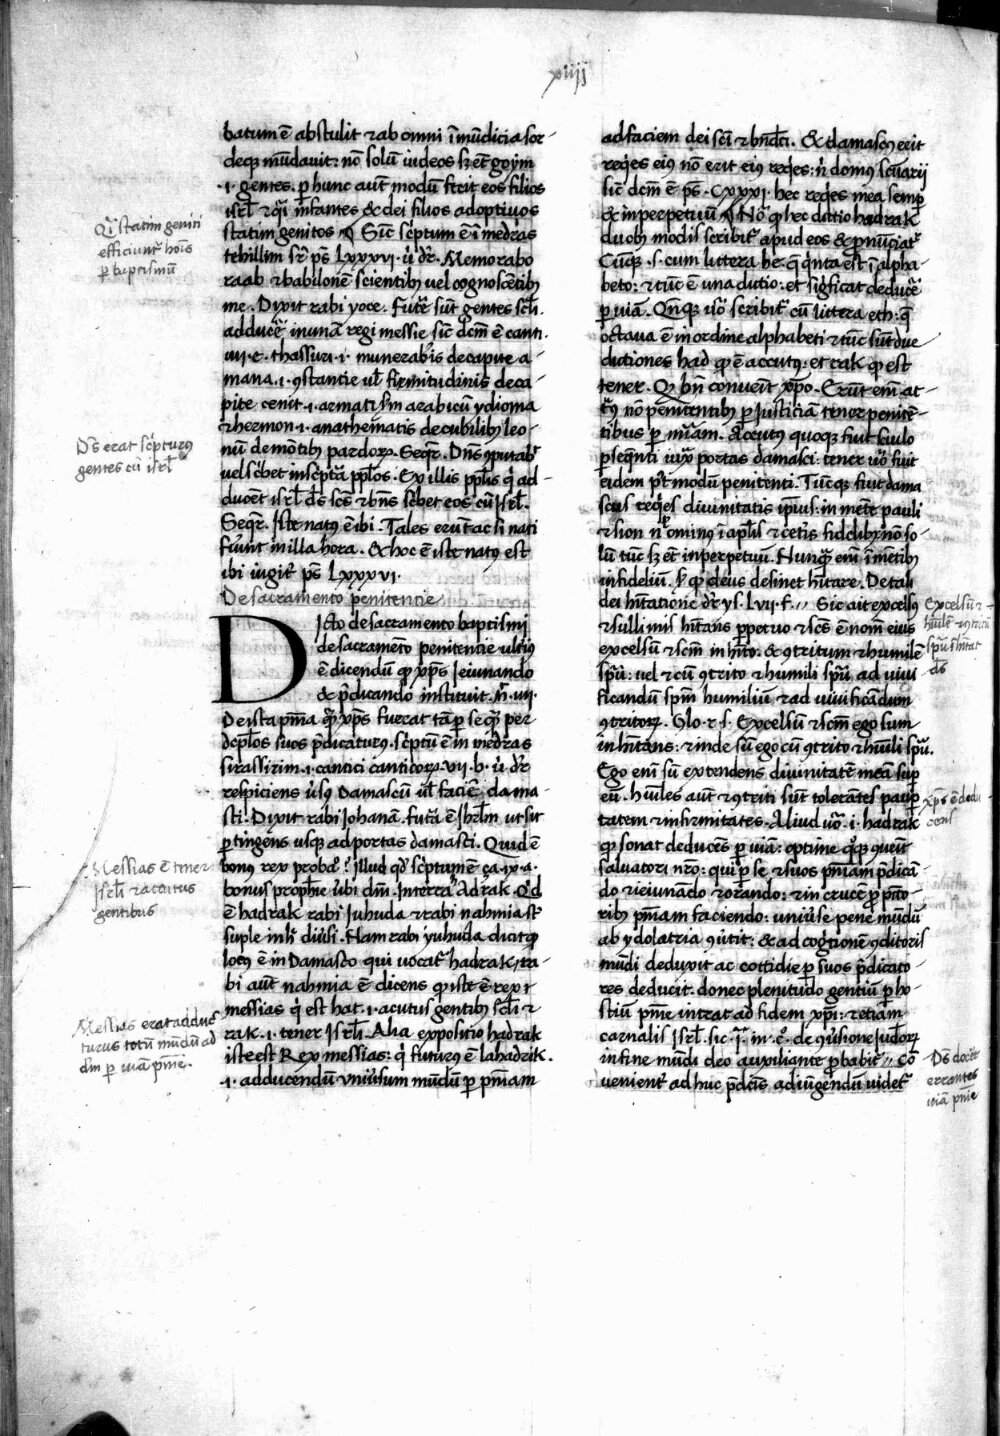 xiiij
batum ē abstulit ⁊ ab omni īmūdicia sor-
deqȝ mūdavit: nō solū iudeos sȝ ēt goym
.i. gentes. ꝑ hunc aūt modū fecit eos filios
isrł ⁊ q̄i infantes & dei filios adoptivos
statim genitos ¶ Sic sc̄ptum ē ī medras
tehillim sr̄ ps̄ Lxxxvi. ū dr̄. Memorabo
raab ⁊ babilonē scientibus vel cognoscētibꝫ
me. Dixit rabi yoce. Futur̄ sūt gentes scł.
adducer̄ munā regi messie sic dcm̄ ē canti.
iiii. e. thassuri .i. munerab̄is de capite a-
mana .i. ɔstantie uł firmitudinis de ca-
pite cenit .i. armati sm̄ arabicū ydioma
⁊ hermon .i. anathematis de cubilibꝫ leo-
nū de mōtibꝫ pardoꝝ. Seqr̄. Dn̄s ɔputabit
vel sc̄bet in sc̄ptā pp̄los. Ex illis pp̄lis qi ad-
ducēt isrł ds̄ scs̄ ⁊ bn̄s sc̄bet eos cū Isrł.
Seqr̄. Iste natus ē ibi. Tales erūt ac si nati
fuiſſnt in illa hora. & hoc ē iste natus est
ibi iugit̄ ps̄ Lxxxvi.
De sacramento penitencie
Dicto de sacramento baptismi
de sacramēto penitencie ultius
ē dicendū qp xp̄s ieiunando
& p̄dicando instituit. n̄. iii.
De ista pn̄ia q̄ xp̄s fuerat tā ꝑ se qȝ per
dcp̄los suos p̄dicaturus. sc̄ptū ē in medras
sirassirim .i. cantici canticoꝝ. vii. b. ū dr̄
respiciens ūsus Damascū uł faciē da ma-
sci. Dixit rabi Iohanā. Futā ē Ihrłm. ut sit
ꝑtingens usqȝ ad portas damasci. Quid ē
bonus rex probat̄? illud qd̄ sc̄ptum ē ça. ix. a.
bonus prophīe ūbi dm̄. In terra Adrak. Qd
ē hadrak rabi Iuhuda ⁊ rabi nahmia st̄
suple inḣ diūsi. Nam rabi yuhuda dicit qp
locus ē in Damasco qui vocat̄ hadrak, ra-
bi aūt nahmia ē dicens qp iste ē rex
messias qi est hat .i. acutus gentibꝫ scłi ⁊
rak .i. tener Isrłi. Alia expositio hadrak
iste est Rex messias: qi futurus ē lahadrik.
.i. adducendū uniūsum mūdū ꝑ pn̄iam
ad faciem dei sci ⁊ bn̄dcti. & damascus erit
reqes eius nō erit eius reqes: nͥ domus scuarii
sic dcm̄ ē ps̄. Cxxxi. hec reqes mea semꝑ
& in perpetuū ¶ No qp hec dictio hadrak
duobꝫ modis scribit̄ apud eos & pronūciat̄
Cūqȝ .s. cum littera he. q̄ qinta est ī alpha-
beto: ⁊ tūc ē una dictio: et sigficat deducer̄
ꝑ viam. Qn̄qȝ ūo scribit̄ cū littera eth: q̄
octava ē in ordine alphabeti ⁊ tūc sūt due
dictiones had qp ē accutus: et rak qp est
tener. Q̄ bn̄ conuēit xp̄o. Erūt em̄ ac-
nō penitentibꝫ ꝑ justiciam tener penitē-
tibus ꝑ mīam. Accutus quoqȝ fuit saulo
ꝑseqnti iuxa portas damasci: tener ūo fuit
eidem pt̄ modū penitenti. Tūcqȝ fuit dama
scus reqes divinitatis ipsius: in mente pauli
⁊ sion nr̄ ominus ī apłis ⁊ cetis fidelibꝫ nō so-
lū tūc sȝ ēt in perpetuū. Nunqȝ em̄ ī mētibꝫ
infideliū, qp deus desinet hītare. De tali
dei hītatione dr̄ ys. Lvii. f. Sic ait excelsus
⁊ sullimis hītans perpetuo ⁊ scs̄ ē nom̄ eius
excelsū ⁊ scm̄ inhīto: & ɔtritum ⁊ humilē
spū: vel ⁊ cū ɔtrito ⁊ humili spū ad vivi
ficandū spm̄ humiliū ⁊ ad vivificandum
ɔtritoꝝ. Glo. r. s. Excelsū ⁊ scm̄ ego sum
inhītans: ⁊ inde sū ego cū ɔtrito ⁊ hūili spū.
Ego em̄ sū extendens divinitatē meā suꝑ
eū. Hūiles aūt ⁊ ɔtriti sūt tolerātes pauꝑ
tatem ⁊ infirmitates. Aliud ūo .i. hadrak
qp sonat deducens ꝑ viam: optime qoqȝ queīt
salvatori nr̄o: qui ꝑ se ⁊ suos pn̄iam p̄dicā-
do ⁊ ieiunādo ⁊ orando: ⁊ in cruce ꝑ pcto-
ribꝫ pn̄iam faciendo: uniūse pene mūdū
ab ydolatria ɔūtit: & ad cogtionē ɔditoris
mūdi deduxit ac cottidie ꝑ suos p̄dicato
res deducit. donec plenitudo gentiū ꝑ ho-
stiū pn̄ie intrat ad fidem xp̄i: ⁊ etiam
carnalis Isrł. sic. ī. m̄. c̄. de ɔūsione Iudeoꝝ
in fine mūdi deo auxiliante ꝓbabit̄ // Cō
venient̄ ad huc p̄dcis adiūgendū videt̄
Qi statim geniti
efficiunt̄ hoīs
ꝑ baptismū
Ds̄ erat sc̄pturus
gentes cū isrł
Messias ē tener
Isrłi ⁊ acutus
gentibus
Messias erat adduc
turus totū mūdū ad
dm̄ ꝑ viā pn̄ie.
Excelsū ⁊
hūilē ⁊ ɔtritū
spū īhītat
ds̄
xp̄s ē dedu
cens
Ds̄ docet
errantes
viā pn̄ie